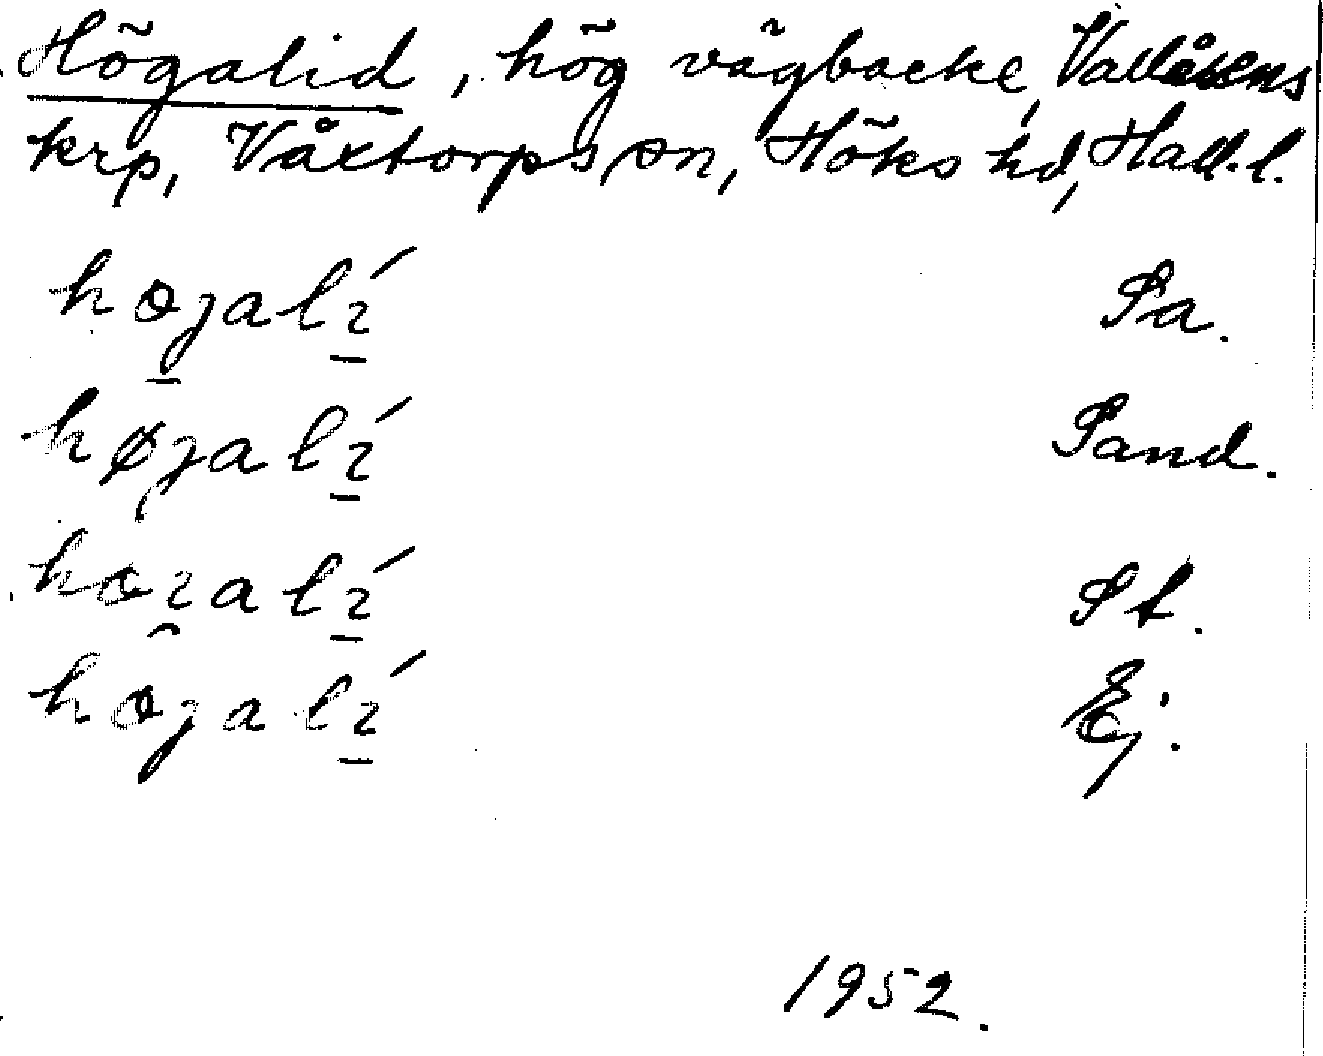 Högalid, hög vägbacke, Vallåsens
krp, Våxtorps sn, Höks hd, Hall. l.
højalí Sa.
højalí Sand.
hoɿalí St.
højalí Ej.
1952.